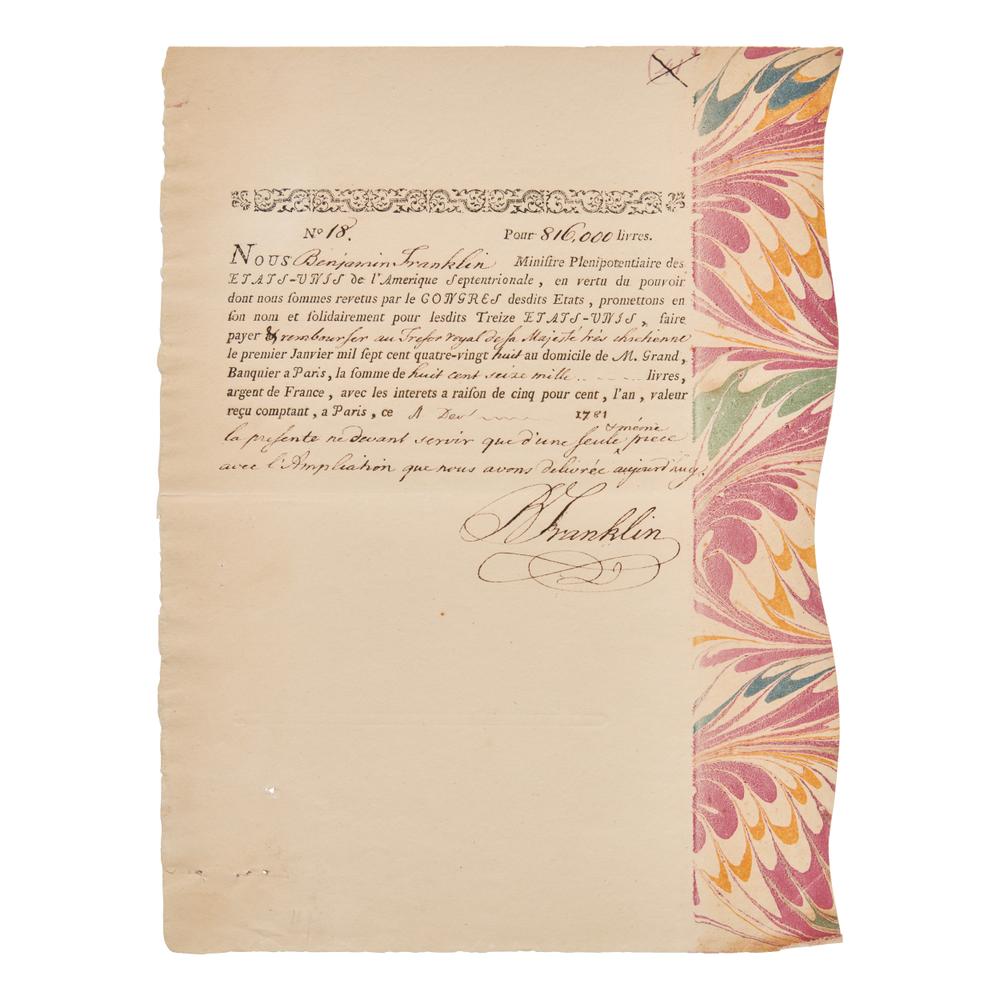 No 18. Pour 816,000 livres.
NOUS Benjamin Franklin Miniſtre Plenipotentiaire des
ETATS-UNIS de l'Amerique ſeptentrionale, en vertu du pouvoir
dont nous ſommes revetus par le CONGRES deſdits Etats, promettons en
ſon nom et ſolidairement pour leſdits Treize ETATS-UNIS, faire
payer & rembourſer au Treſor royal de ſa Majesté très chrchenne
le premier Janvier mil ſept cent quatre-vingt huit au domicile de M. Grand,
Banquier a Paris, la ſomme de huit cent seize mille livres,
argent de France, avec les interets a raiſon de cinq pour cent, l'an, valeur
reçu comptant, a Paris, ce 1781
& même
la preſente ne devant servir que d'une ſeule piece
avec l'Ampliation que nous avons delivrée aujourd'huy.
B Franklin